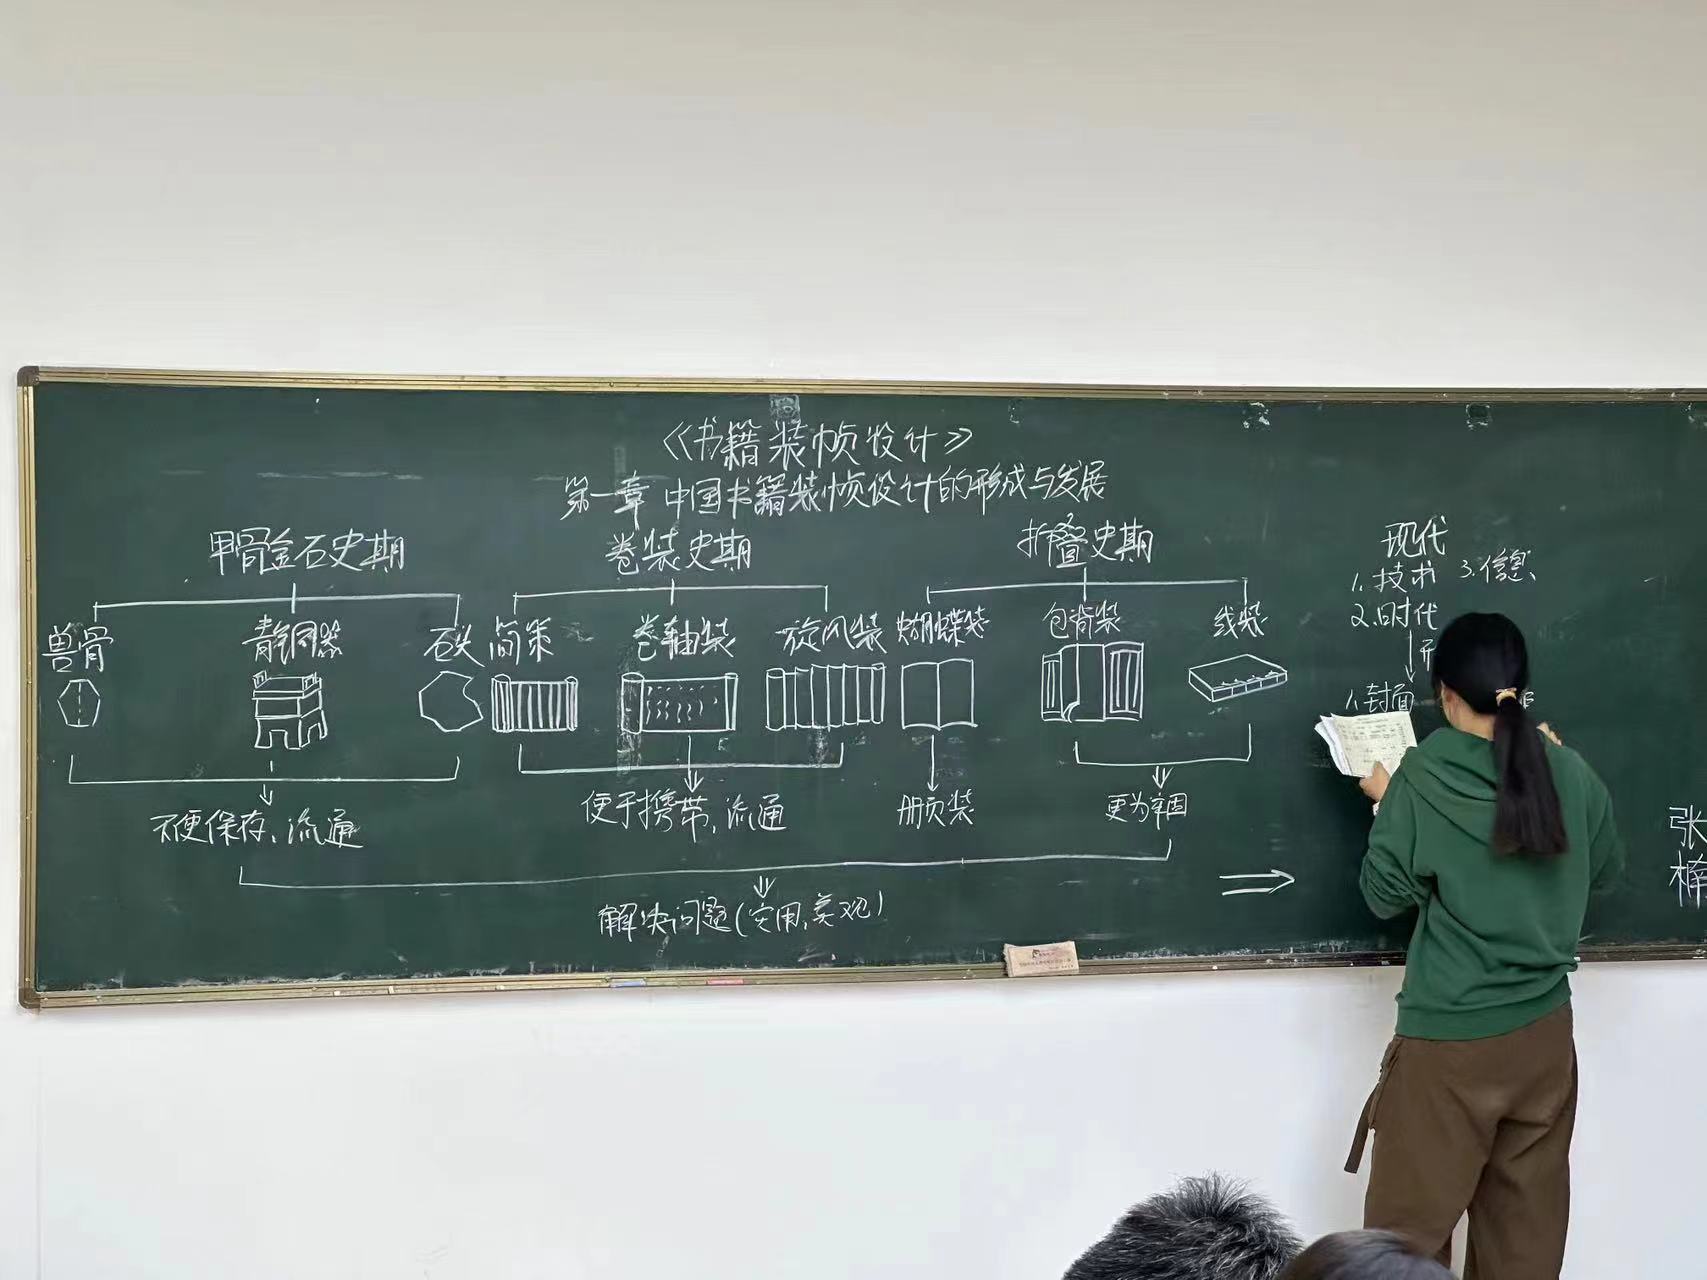 《书籍装帧设计》
第一章 中国书籍装帧设计的形成与发展
甲骨金石史期
卷装史期
折叠史期
现代
1.技术
3.信息
2.时代
兽骨
青铜器
石头
简策
卷轴装
旋风装
蝴蝶装
包背装
线装
1.封面
不便保存、流通
便于携带、流通
册页装
更为牢固
解决问题(实用、美观)
张
楠